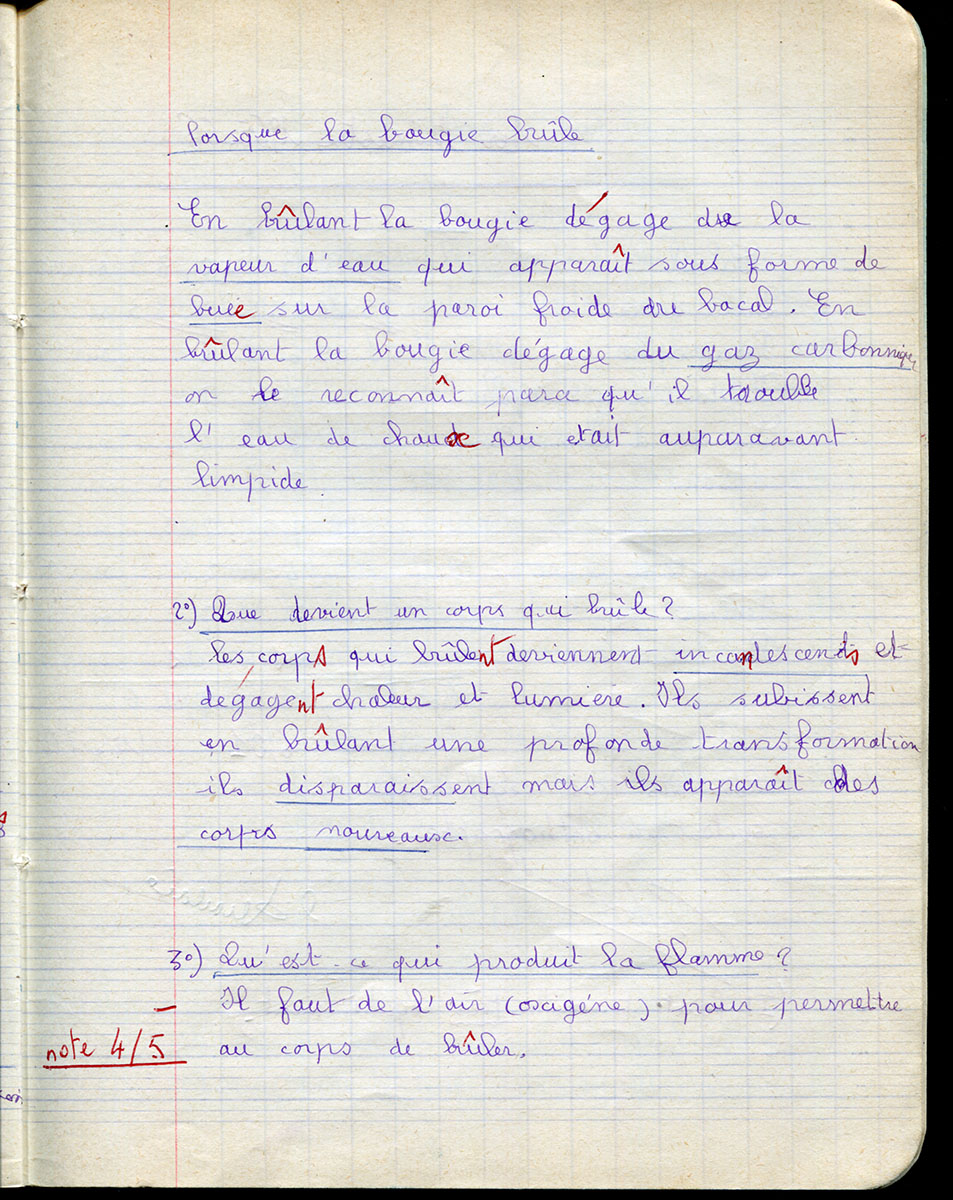 lorsque la bougie brûle
En brûlant la bougie dégage de la
vapeur d'eau qui apparaît sous forme de
buée sur la paroi froide du bacal. En
brûlant la bougie dégage du gaz carbonnique
on le reconnaît para qu'il trouble
l'eau de chaude qui etait auparavant
limpide
2°) Que devient un corps qui brûle ?
les corps qui brûlent deviennent incandescents et
dégagent chaleur et lumière. Ils subissent
en brûlant une profonde transformation
ils disparaissent mais ils apparaît des
corps nouveaux.
3°) Qu'est-ce qui produit la flamme ?
Il faut de l'air (oxigéne). pour permettre
note 4/5 au corps de brûler.